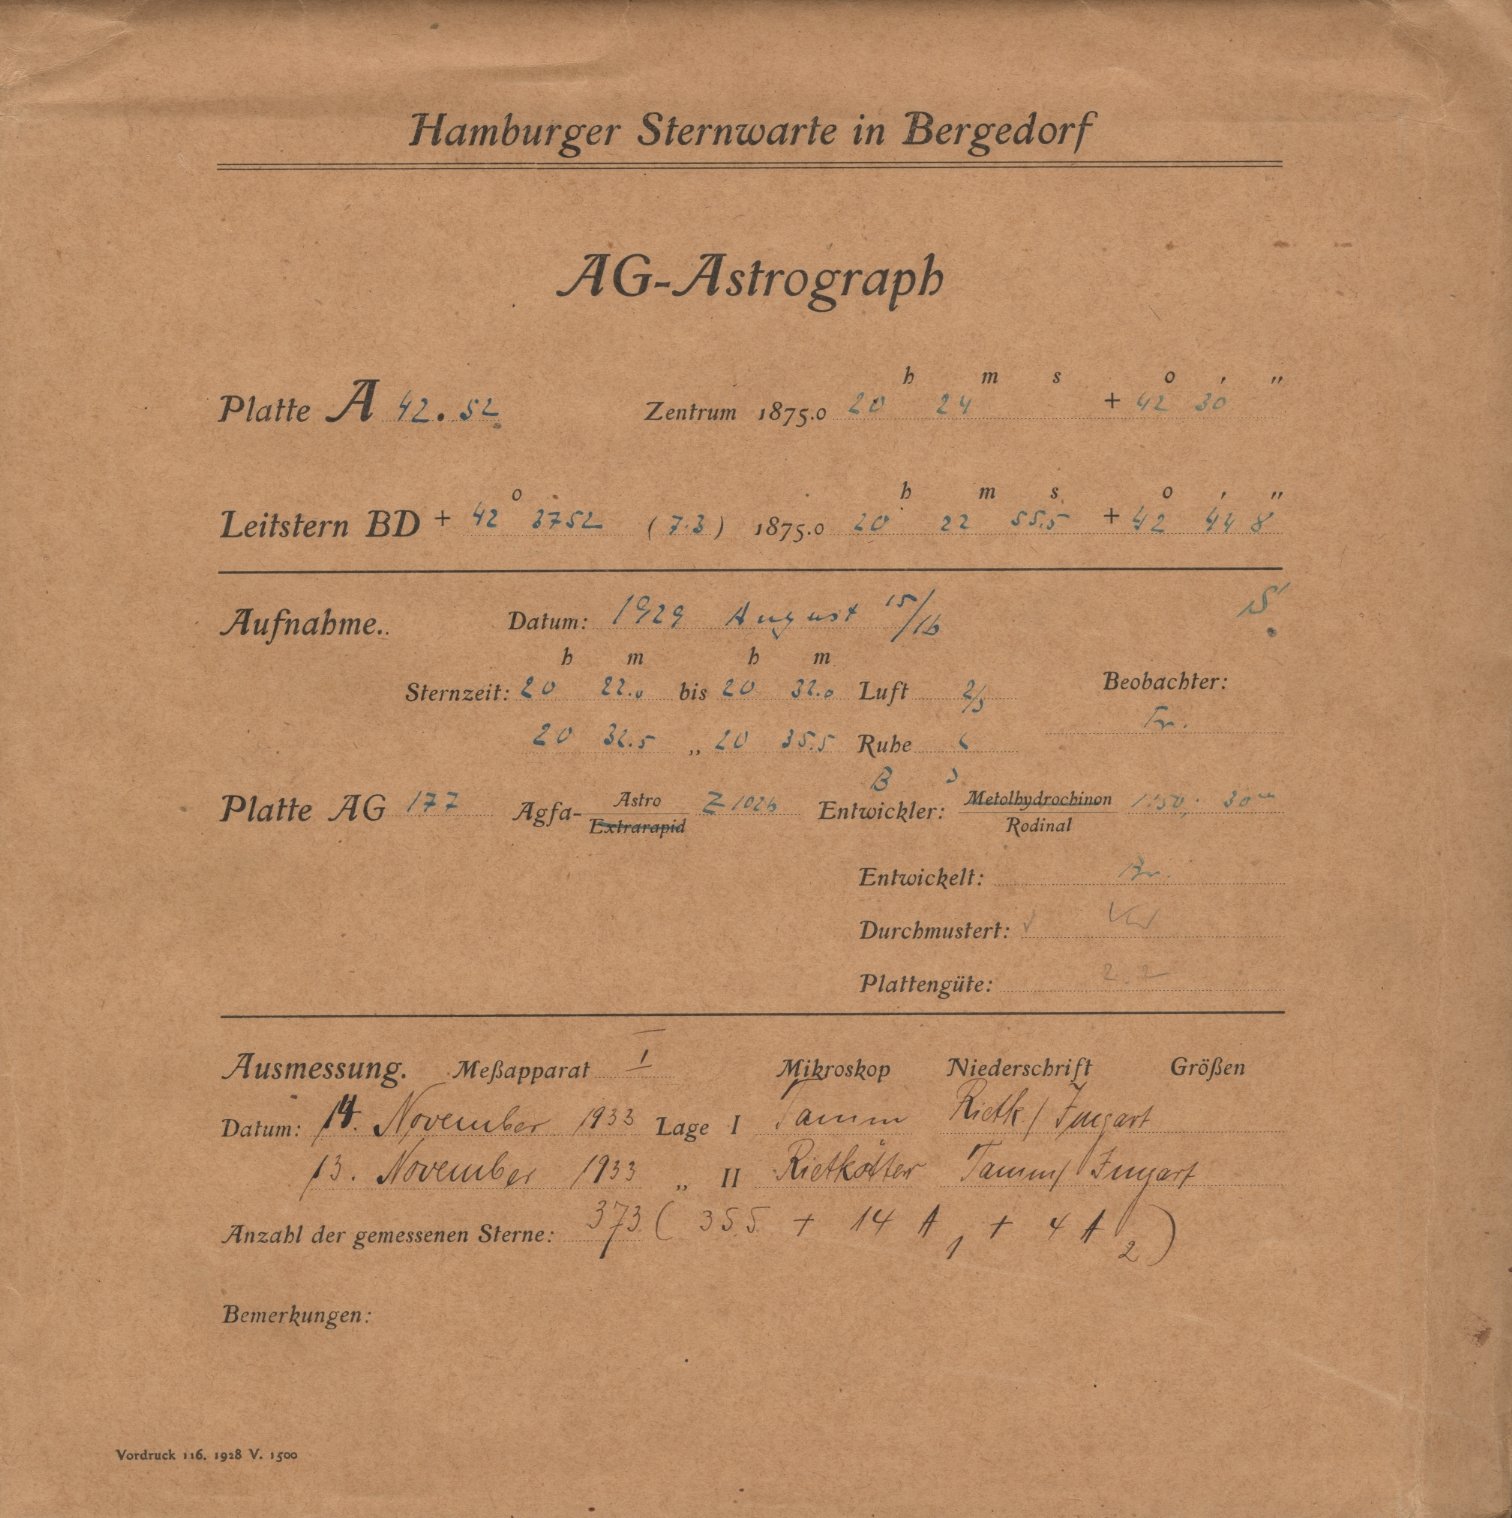 Hamburger Sternwarte in Bergedorf
AG-Astrograph
h m s o ′ ″
Platte A 42.52 Zentrum 1875.0 20 24 + 42 30
o h m s o ′ ″
Leitstern BD + 42 3752 (7.3) 1875.0 20 22 55.5 + 42 44 8
Aufnahme. Datum: 1929 August 15/16
h m h m
Sternzeit: 20 22.0 bis 20 32.0 Luft 2/3 Beobachter:
20 32.5 „ 20 35.5 Ruhe
B
Platte AG 177 Agfa- Astro Extrarapid Z 1026 Entwickler: Metolhydrochinon Rodinal 1:50; 30m
Entwickelt: Br.
Durchmustert:
Plattengüte: 2.2
Ausmessung. Meßapparat I Mikroskop Niederschrift Größen
Datum: 14. November 1933 Lage I Tamm Rietk/
13. November 1933 „ II Rietkötter Tamm/
Anzahl der gemessenen Sterne: 373 (355 + 14 A1 + 4 A2)
Bemerkungen:
Vordruck 116. 1928 V. 1500